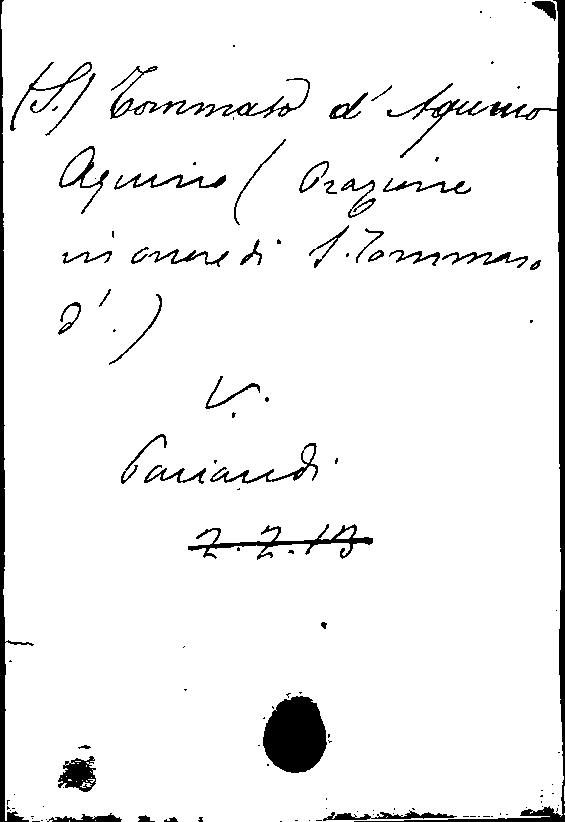 (S.) Tommaso d'Aquino
Aquino (Orazione
in onore di S. Tommaso
d'.)
V.
Pariandi
2.2.13